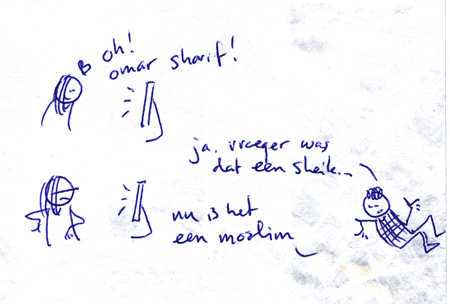 oh!
omar sharif!
ja. vroeger was
dat een sheik...
nu is het
een moslim